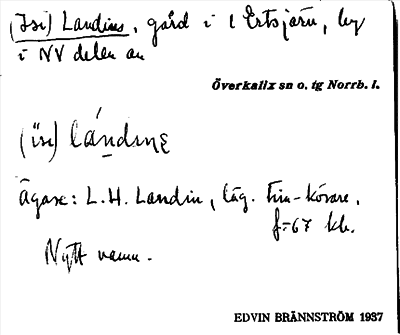 (Isi) Landins, gård i l Ertsjärn, by
i NV delen av
Överkalix sn o. tg Norrb. l.
(ı̈sı) lándınɛ
Ägare: L.H. Landin, låg. Finn-körare.
f=67 kb.
Nytt namn.
EDVIN BRÄNNSTRÖM 1937